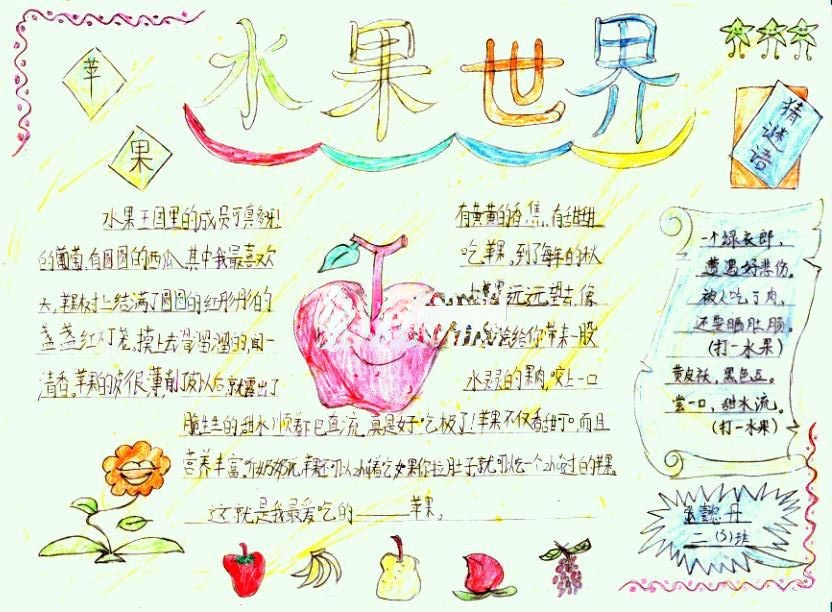 水果世界
苹
果
猜谜语
水果王国里的成员可真多呀!有黄黄的香蕉,有甜甜
的葡萄,有圆圆的西瓜,其中我最喜欢吃苹果,到了每年的秋
天,苹果树上结满了圆圆的红彤彤的苹果远远望去,像
盏盏红灯笼。摸上去滑溜溜的,闻一会给你带来一股
清香。苹果的皮很薄,削了皮以后就露出了水灵灵的果肉,咬上一口
脆生生的甜水顺着嘴巴直流,真是好吃极了!苹果不仅香甜可口,而且
营养丰富。听奶奶说,苹果还可以zhǔ着吃如果你拉肚子就可以吃一个zhǔ过的苹果。
这就是我最爱吃的——苹果。
一个绿衣郎,
遭遇好悲伤。
被人吃了肉,
还要晒肚肠。
(打一水果)
黄皮袄,黑色豆。
尝一口,甜水流。
(打一水果)
懿丹
二(5)班